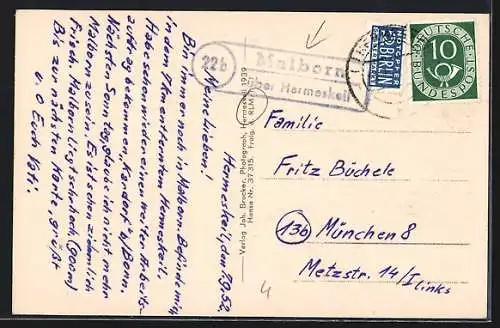 Hermeskeil, den 7.9.52.
Meine Lieben!
Bin immer noch in Malborn. Befinde mich
in dem 4 km entfernten Hermeskeil.
Habe schon wieder einen weiteren Arbeits-
auftrag bekommen,
Nächsten Sonntag glaube ich nicht mehr
Malborn zu sein. Es ist schon ziemlich
frisch. Malborn liegt sehr hoch
Bis zur nächsten Karte, grüßt
u. O Euch Vati.
Verlag Joh. Brucker, Photograph, Hermeskeil
Hanse Nr. 37 315. Freig. d. RLM 1939
22b
Malborn
über Hermeskeil
NOTOPFER
2 BERLIN
STEUERMARKE
DEUTSCHE
10
BUNDESPOST
Familie
Fritz Büchele
13b München 8
Metzstr. 14/I links
4